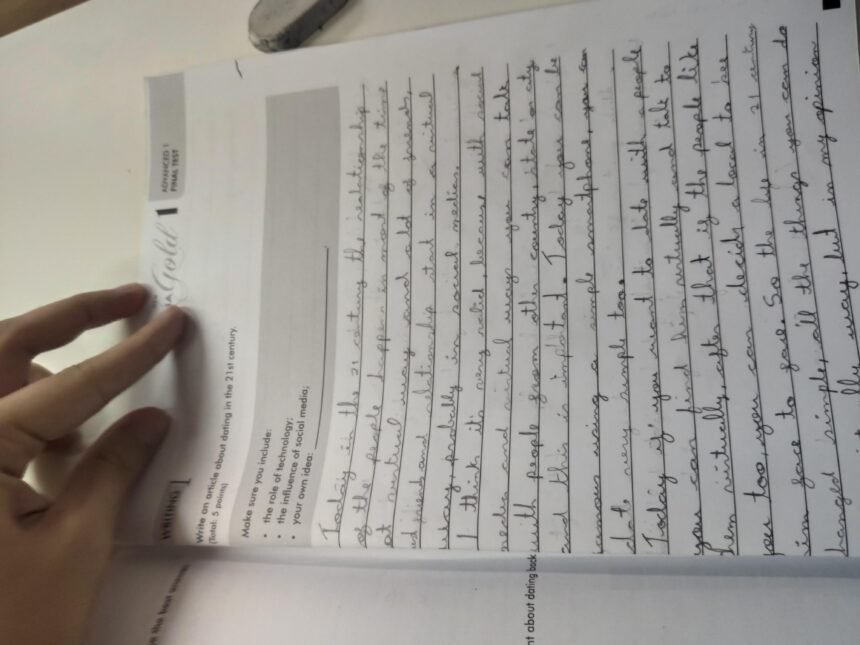 Gold 1
ADVANCED 1
FINAL TEST
WRITING 1
Write an article about dating in the 21st century.
(Total: 5 points)
Make sure you include:
• the role of technology;
• the influence of social media;
• your own idea:
Today in the 21 century the realationship
of the people happen in most of the time
at virtual way and a lot of friends,
and relationship start in a virtual
way, probably in social medias.
I think it's very valid, because with social
and virtual ways you can talk
with people from other country, state or city
and this is important. Today you can be
using a simple smartphone, you can
date very simple too.
Today if you want to date with a people
you can find him virtually and talk to
virtually, after that if the people like
you too, you can decide a local to see
face to face. So the life in 21 century
simple, all the things you can do
way, but in my opinion
nt about dating back